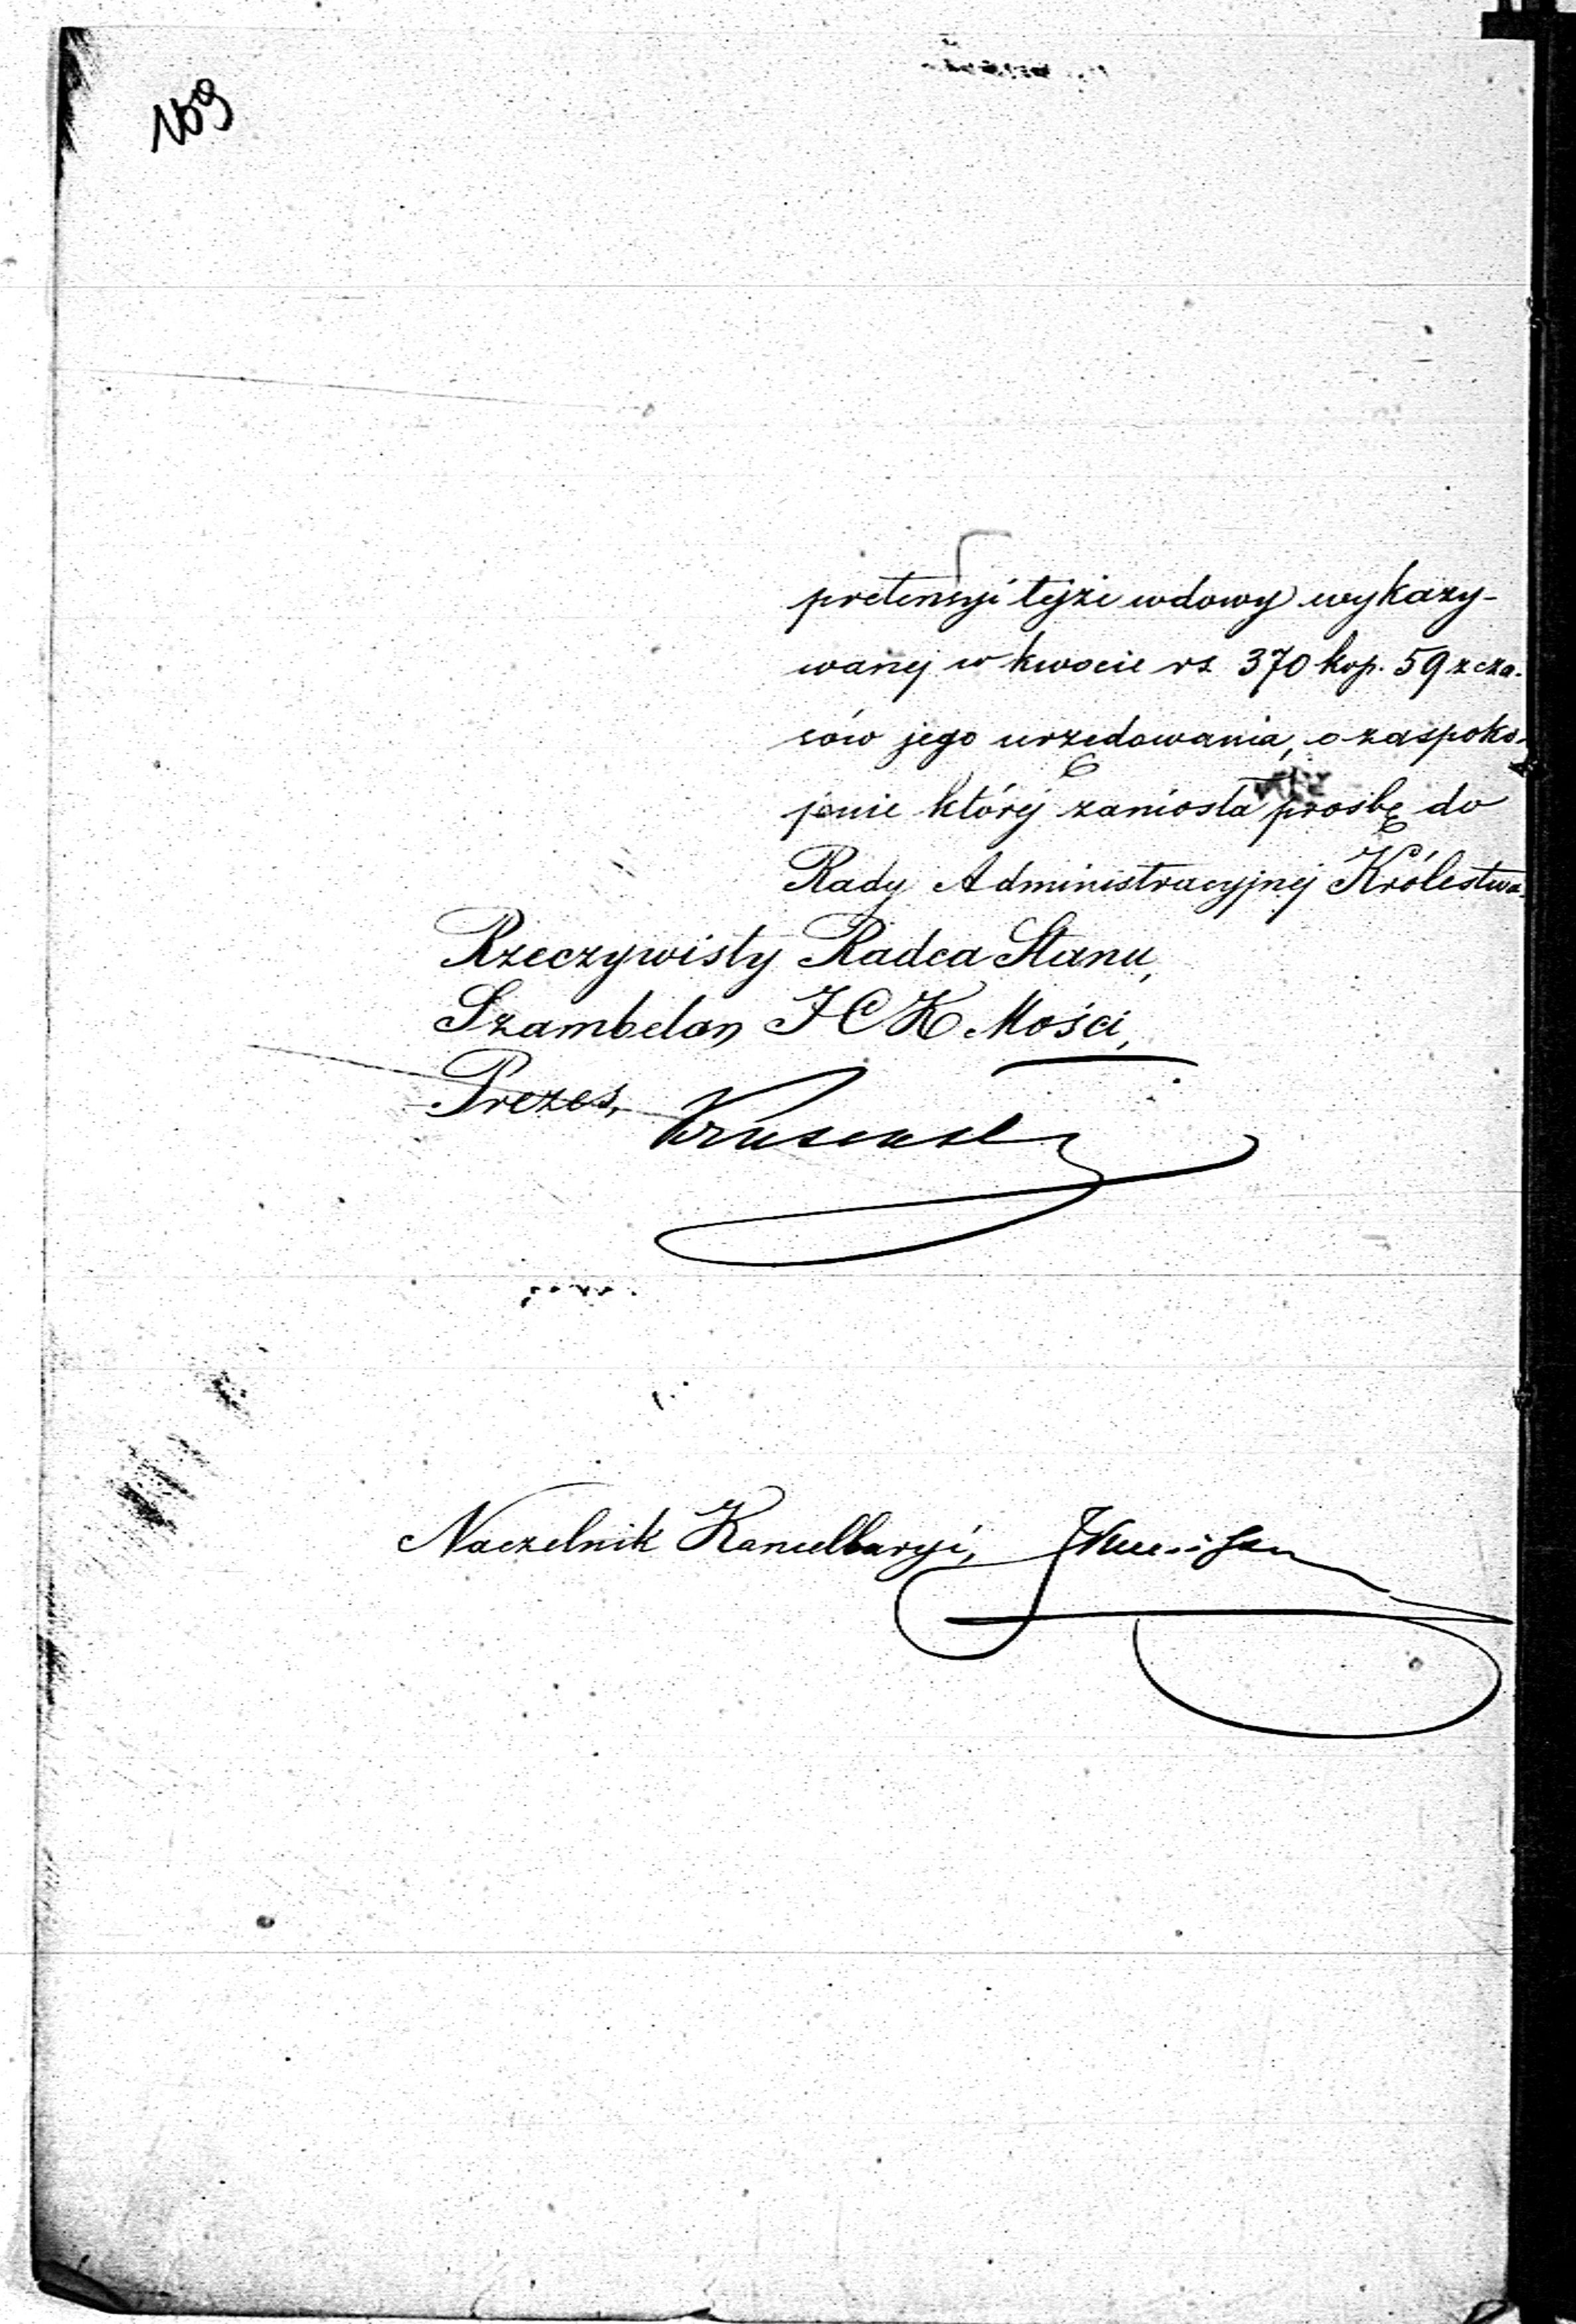 169
pretensyi tejże wdowy wykazy-
wanej w kwocie rs. 370 kop. 59 z cza-
sów jego urzędowania, o zaspoko-
jenie której zaniosła prośbę do
Rady Administracyjnej Królestwa.
Rzeczywisty Radca Stanu,
Szambelan J C K Mości,
Prezes,
Naczelnik Kancellaryi,